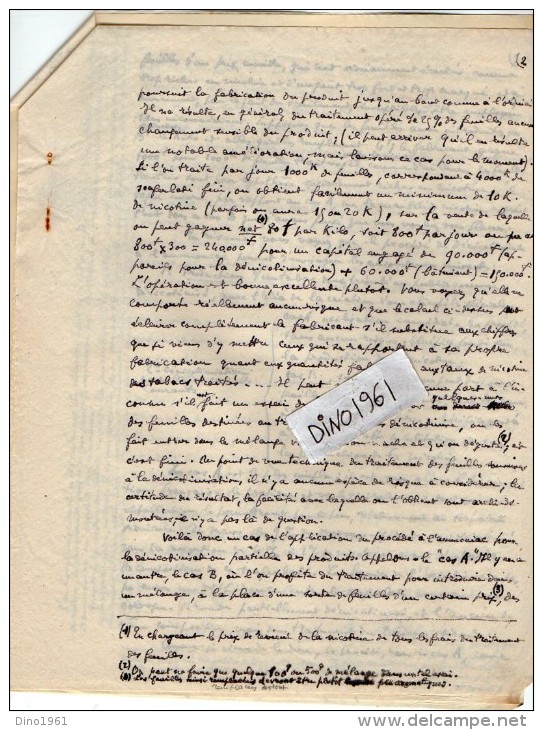 (2
poursuit la fabrication du produit jusqu'au bout comme à l'ordinaire
Il ne résulte, en général, du traitement opéré de 25% des feuilles aucun
changement sensible du produit; (il peut arriver qu'il en résulte
une notable amélioration mais laissons ce cas pour le moment).
Si l'on traite par jour 1000K de feuilles, correspondant à 4000K de
scaferlati fini, on obtient facilement un minimum de 10K.
de nicotine (parfois on aura 15 ou 20K), sur la vente de laquelle
on peut gagner net (1) 80f par kilo, soit 800f par jour ou par an
800f x 300 = 240.000f pour un capital engagé de 90.000f (ap-
pareils pour la dénicotinisation) + 60.000f (bâtiment) = 150.000f.
L'opération est bonne, excellente plutôt. Vous voyez qu'elle ne
comporte réellement aucun risque et que le calcul ci-dessus peut
éclairer complètement le fabricant s'il substitue aux chiffres
que je viens d'y mettre ceux qui se rapportent à sa propre
fabrication quant aux quantités aux taux de nicotine
des tabacs traités.... Il peut une part à l'in-
connu s'il fait un essai de quelques uns
des feuilles destinées au dénicotinise, on les
fait entrer dans le mélange et qu'on déguste (2), et
c'est fini. Au point de vue technique du traitement des feuilles soumises
à la dénicotinisation, il n'y a aucune espèce de risque à considérer; la
certitude du résultat, la facilité avec laquelle on l'obtient sont archi dé-
montrées, il n'y a pas là de question.
Voilà donc un cas de l'application du procédé à l'ammoniac pour
la dénicotinisation partielle des produits. Appelons-le le "cas A". Il y en a un
autre, le cas B, où l'on profite du traitement pour introduire dans
un mélange, à la place d'une sorte de feuilles d'un certain prix, (3) des
(1) En chargeant le prix de revient de la nicotine de tous les frais du traitement
des feuilles.
(2) On peut ne faire que quelque 100K ou 500K de mélange dans un tel essai.
(3) Les feuilles ainsi remplacées devront être plutôt peu aromatiques.
DINO1961
Dino1961
delcampe.net